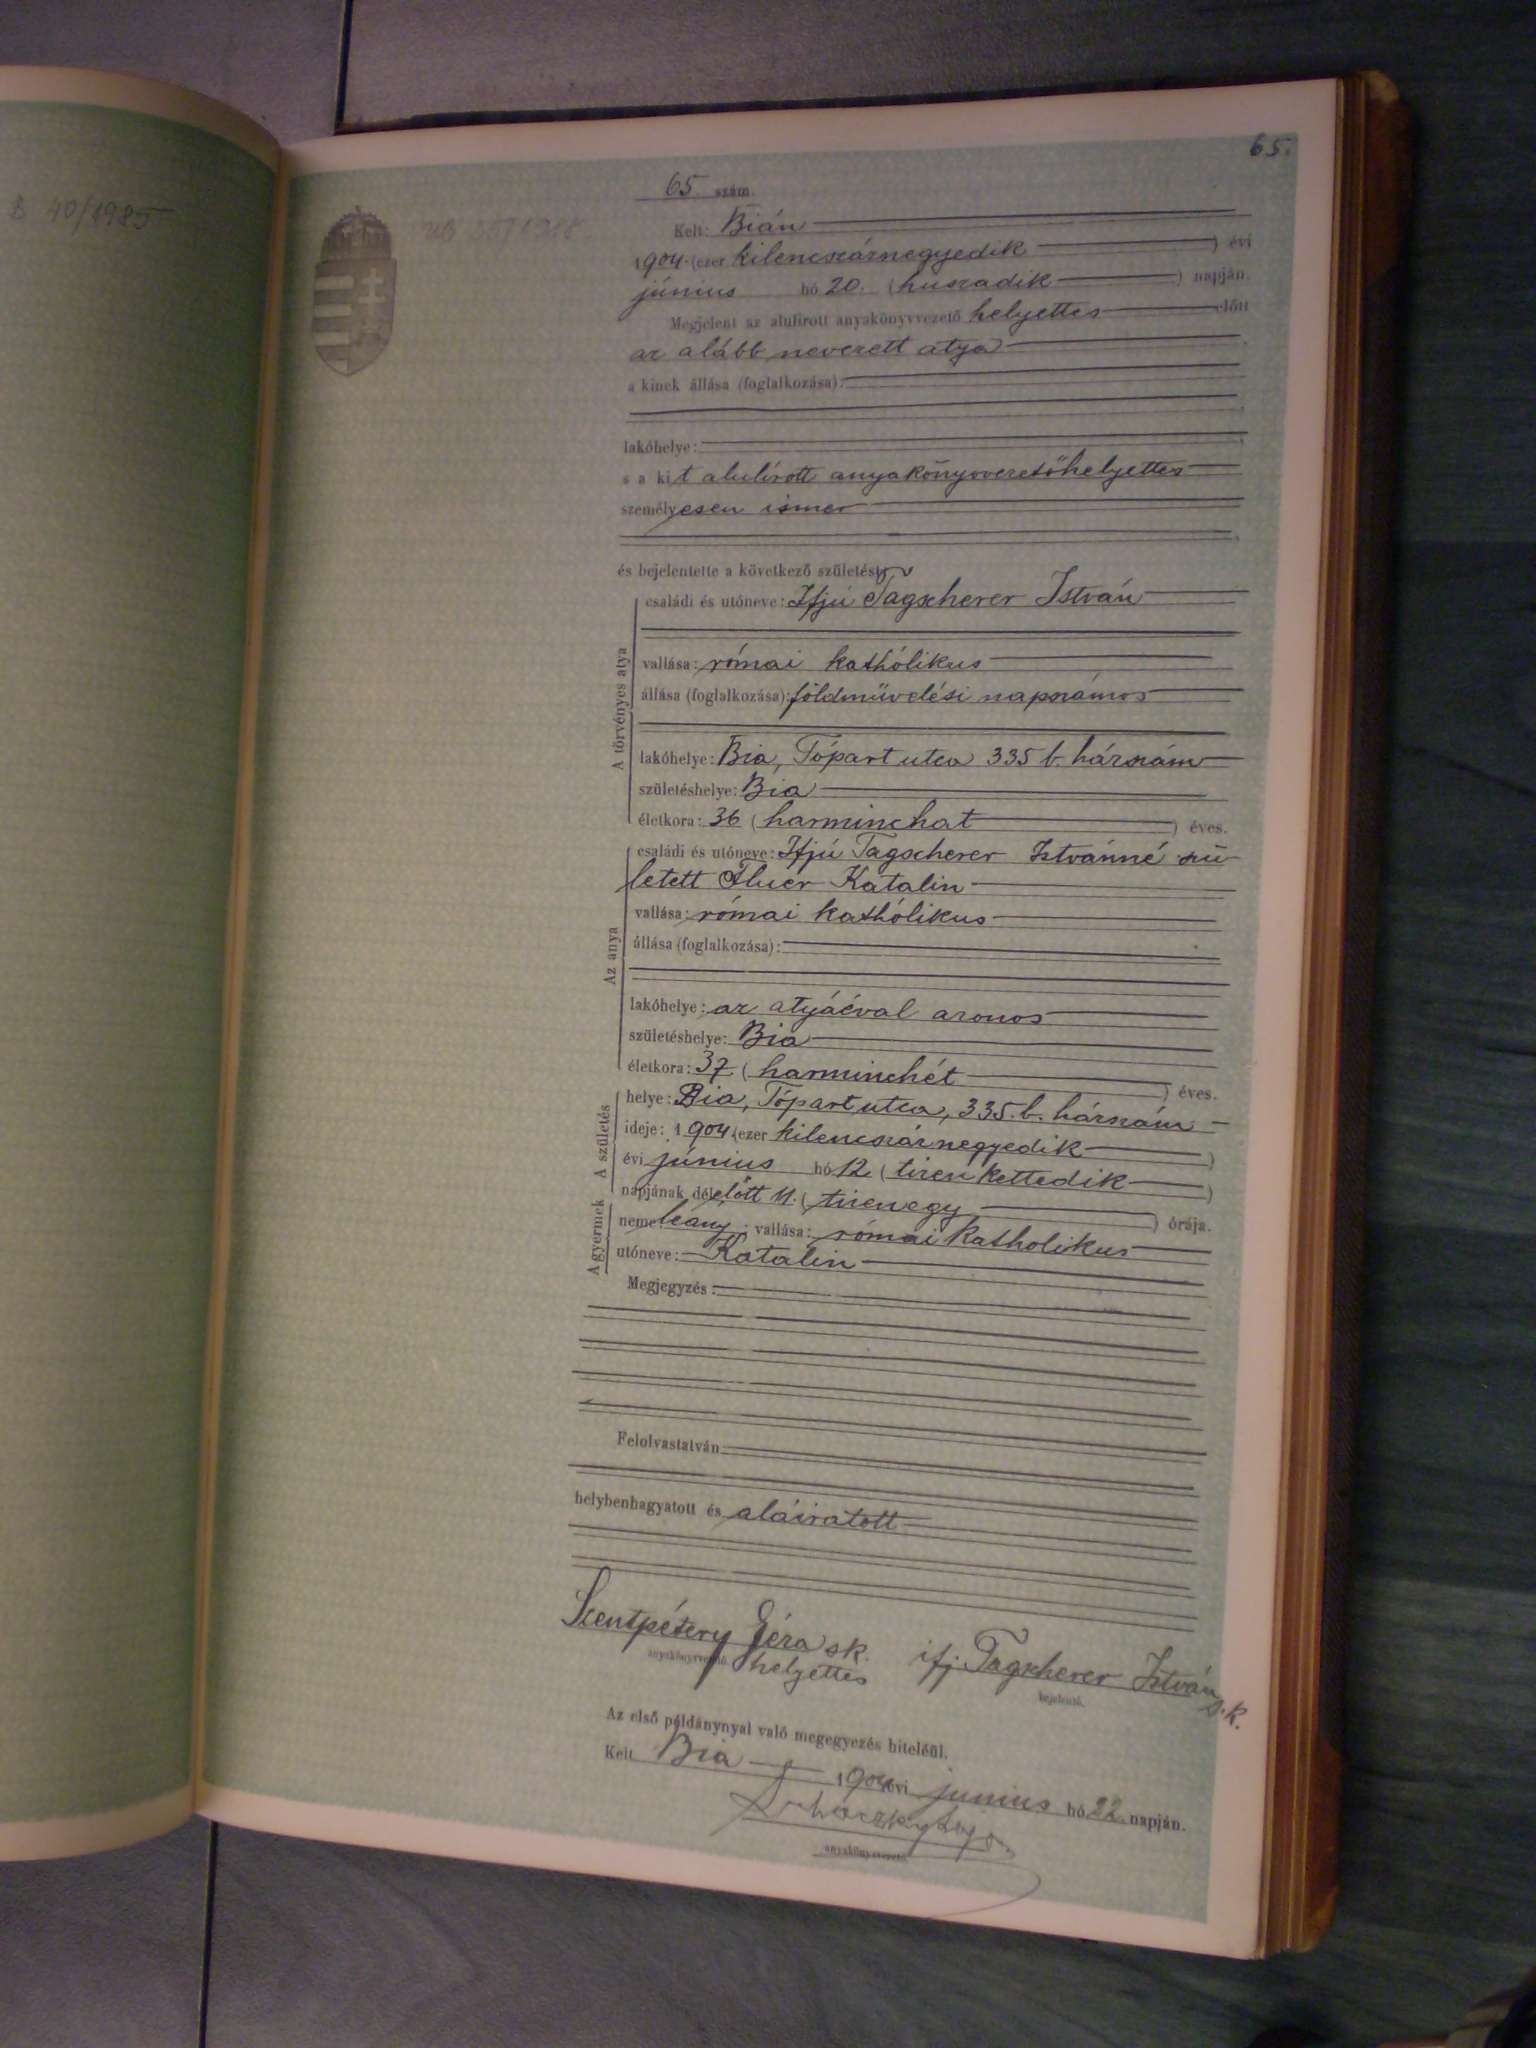 65.
B 40/1985
65 szám.
Kelt: Bián
1904. (ezer kilencszáznegyedik ) évi
június hó 20. (huszadik ) napján.
Megjelent az alulirott anyakönyvvezető helyettes előtt
az alább nevezett atya
a kinek állása (foglalkozása):
lakóhelye:
s a kit alulírott anyakönyvvezetőhelyettes
személyesen ismer
és bejelentette a következő születést:
A törvényes atya
családi és utóneve: Ifjú Tagscherer István
vallása: római kathólikus
állása (foglalkozása): földmüvelési napszámos
lakóhelye: Bia, Tópart utca 335 b. házszám
születéshelye: Bia
életkora: 36 (harminchat ) éves.
Az anya
családi és utóneve: Ifjú Tagscherer Istvánné szü-
letett Fluer Katalin
vallása: római kathólikus
állása (foglalkozása):
lakóhelye: az atyáéval azonos
születéshelye: Bia
életkora: 37 (harminchét ) éves.
A születés
helye: Bia, Tópart utca, 335. b. házszám
ideje: 1904. (ezer kilencszáznegyedik )
évi június hó 12 (tizenkettedik )
napjának délelőtt 11. (tizenegy ) órája.
A gyermek
neme: leány; vallása: római katholikus
utóneve: Katalin
Megjegyzés:
Felolvastatván
helybenhagyatott és aláíratott
Szentpétery Géza sk. ifj. Tagscherer István s.k.
anyakönyvvezető. helyettes bejelentő.
Az első példánynyal való megegyezés hiteléül.
Kelt Bia 1904 évi junius hó 22. napján.
anyakönyvvezető.